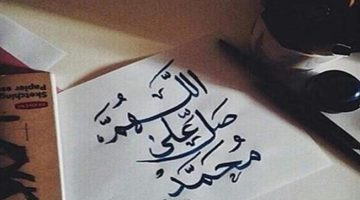 اللَّهُمَّ
صَلِّ عَلَى
مُحَمَّدٍ
Sketching
Papier es